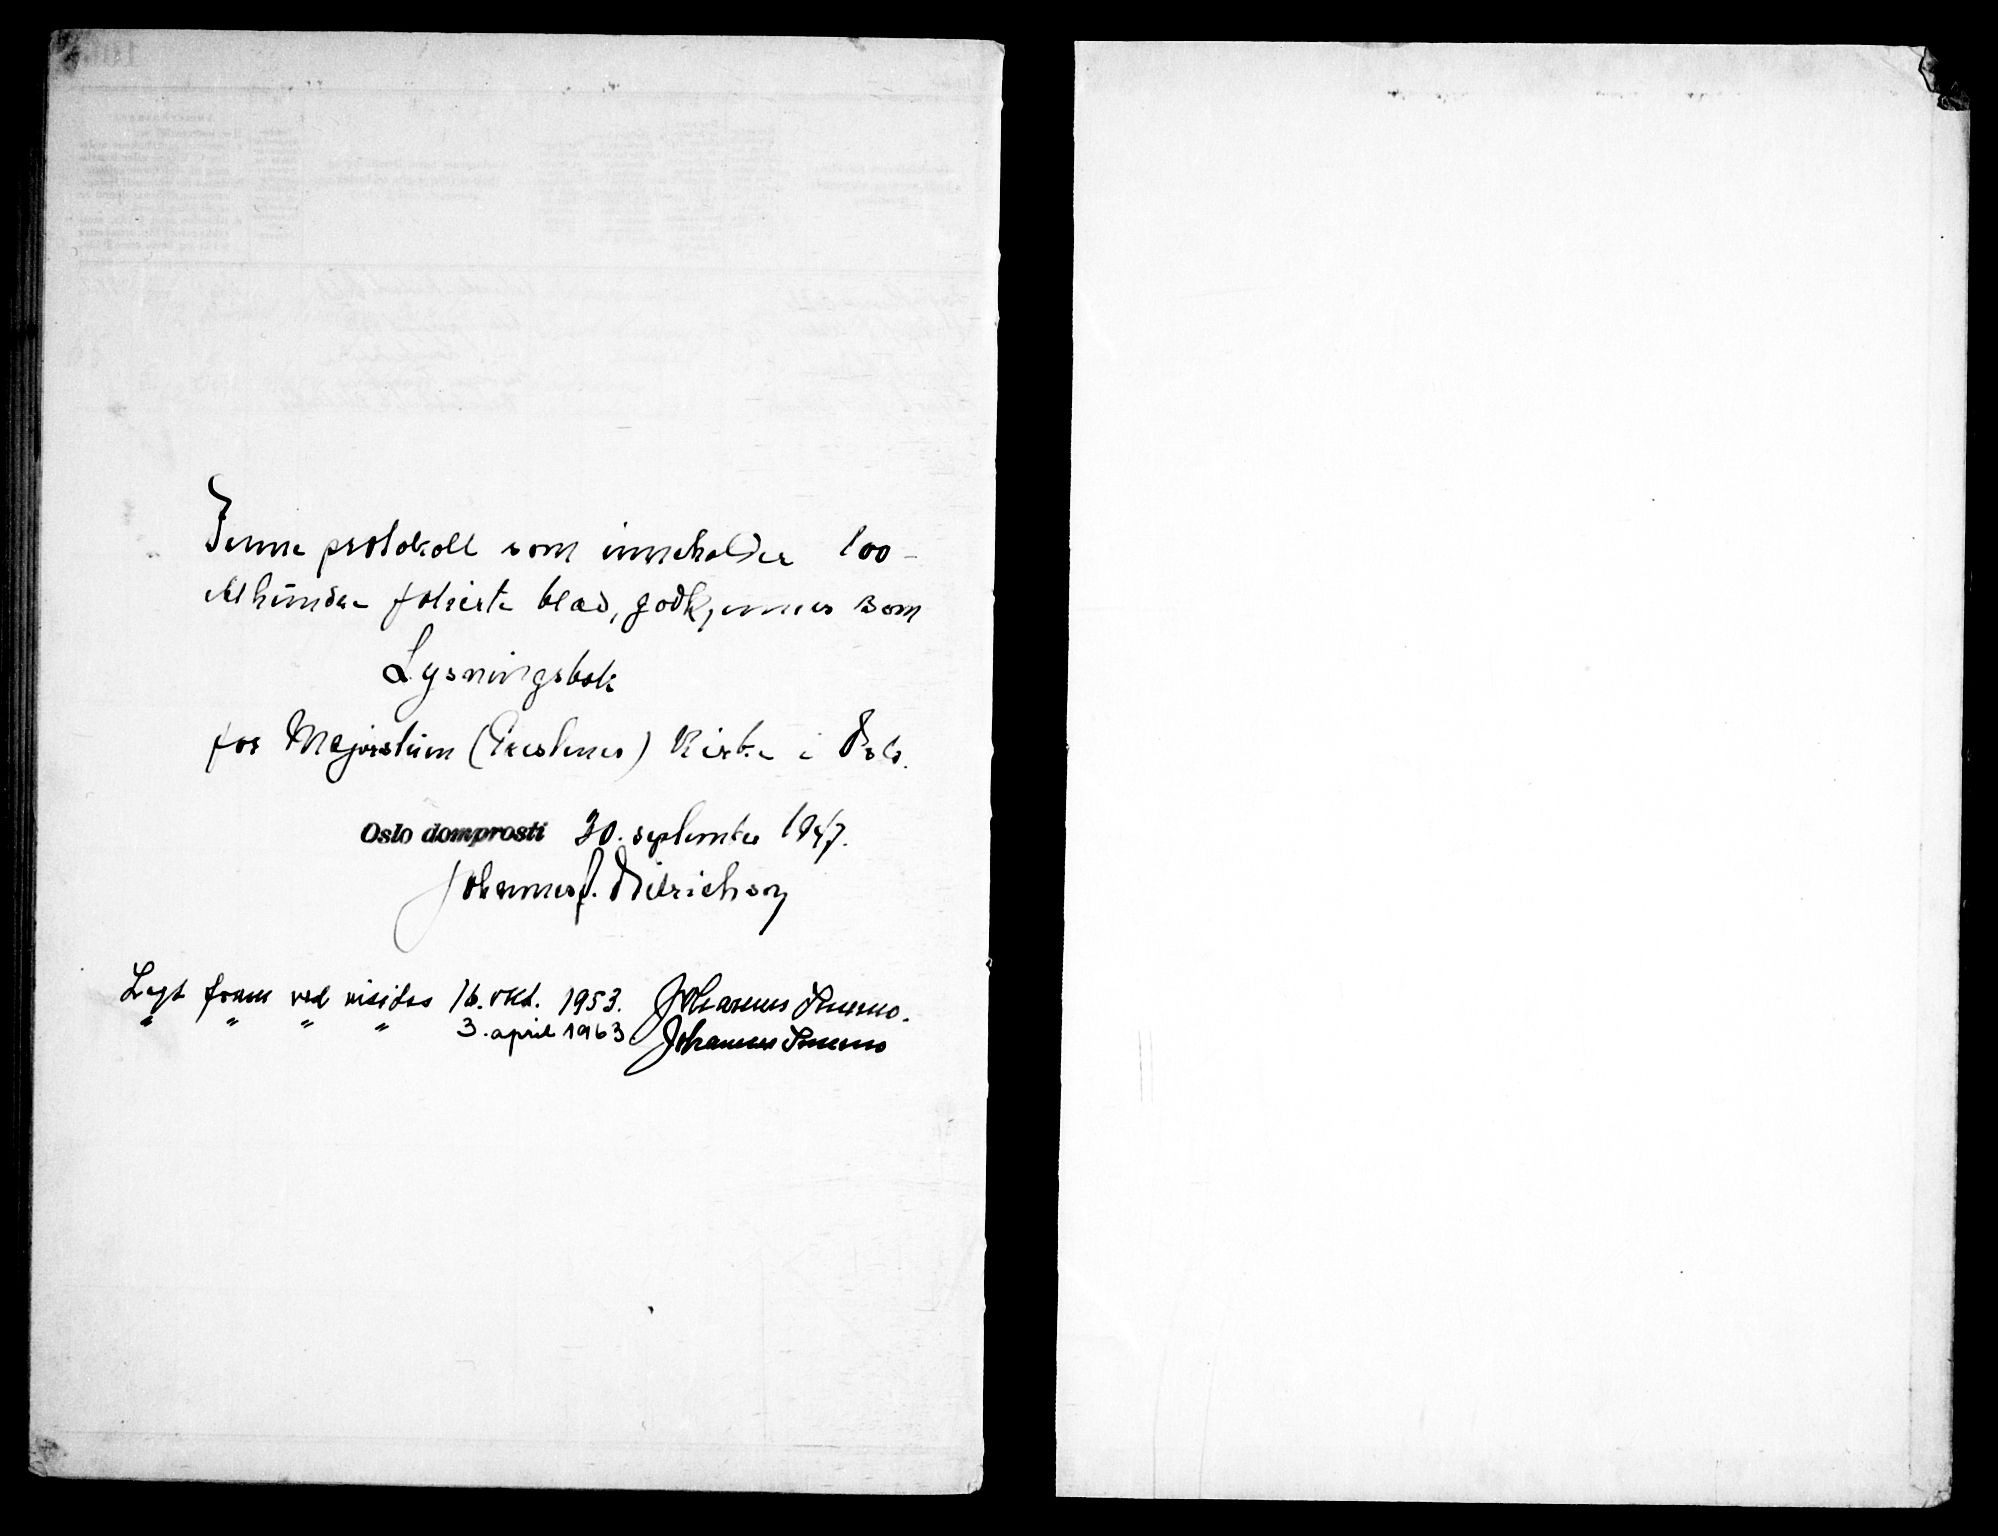 Denne protokoll som inneholder 100 -
ethundre folierte blad, godkjennes som
Lysningsbok
for Majorstuen ( ) Kirke i Oslo.
Oslo domprosti 30. september 1947.
Johannes J. Dietrichson
Lagt fram ved visitas 16. okt. 1953. Johannes Smemo.
" " " " 3. april 1963. Johannes Smemo